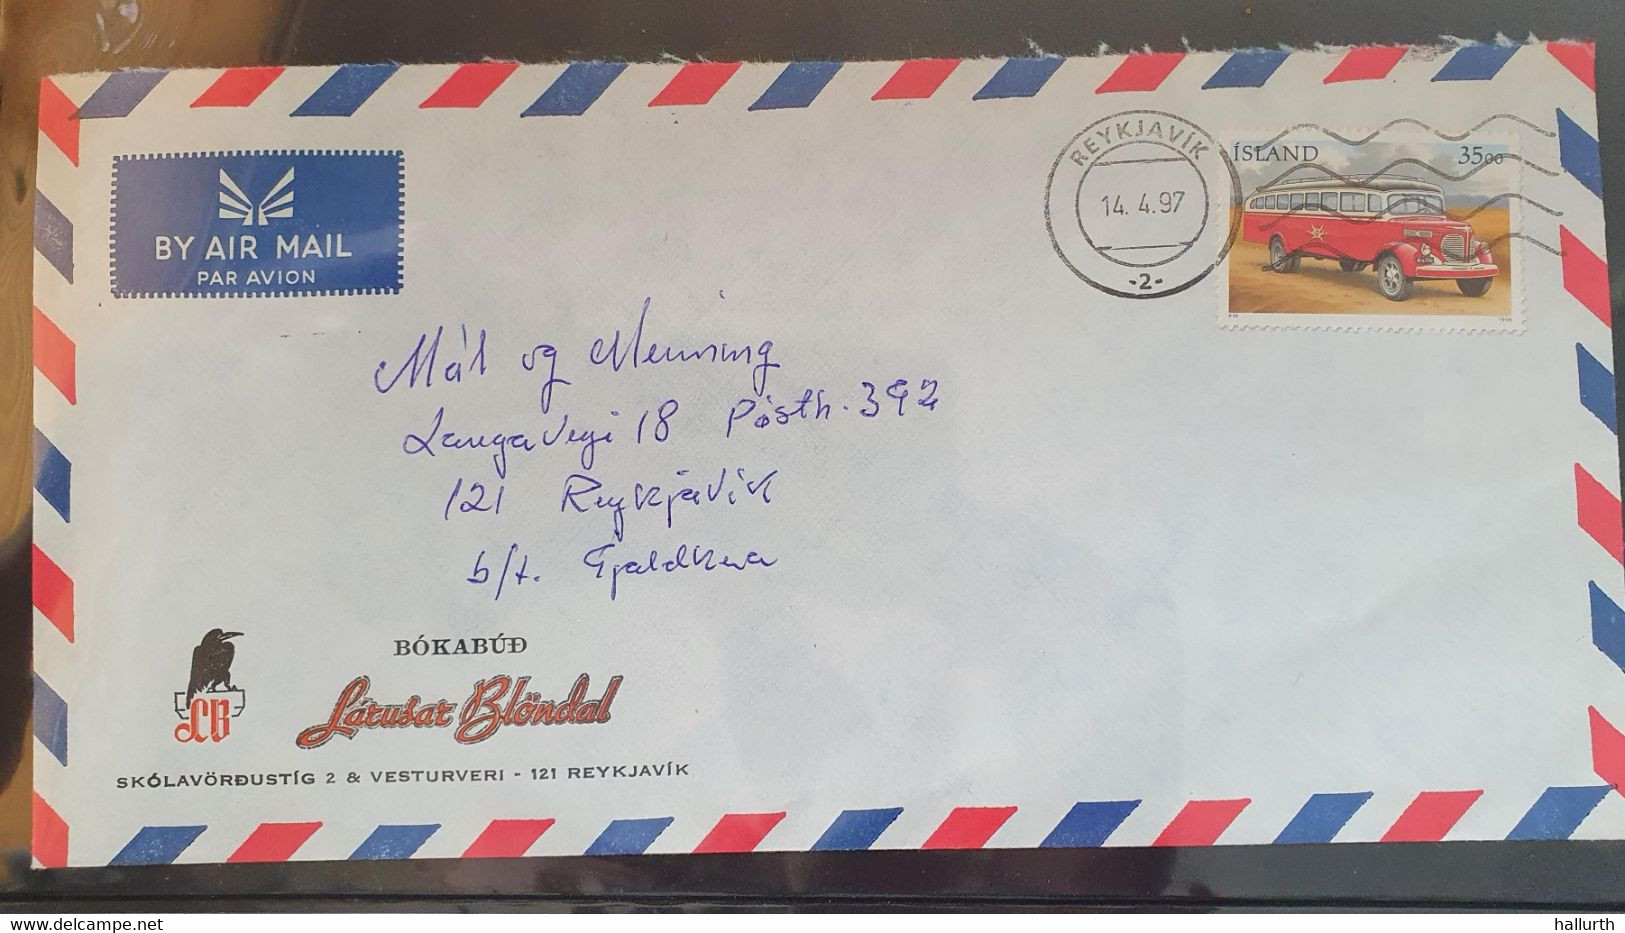 REYKJAVÍK
14. 4. 97
-2-
ÍSLAND 3500
PM 1996
BY AIR MAIL
PAR AVION
Mál og Menning
Laugavegi 18 Pósth. 392
121 Reykjavík
b/t. Gjaldkera
BÓKABÚÐ
LB
Lárusar Blöndal
SKÓLAVÖRÐUSTÍG 2 & VESTURVERI - 121 REYKJAVÍK
www.delcampe.net
hallurth